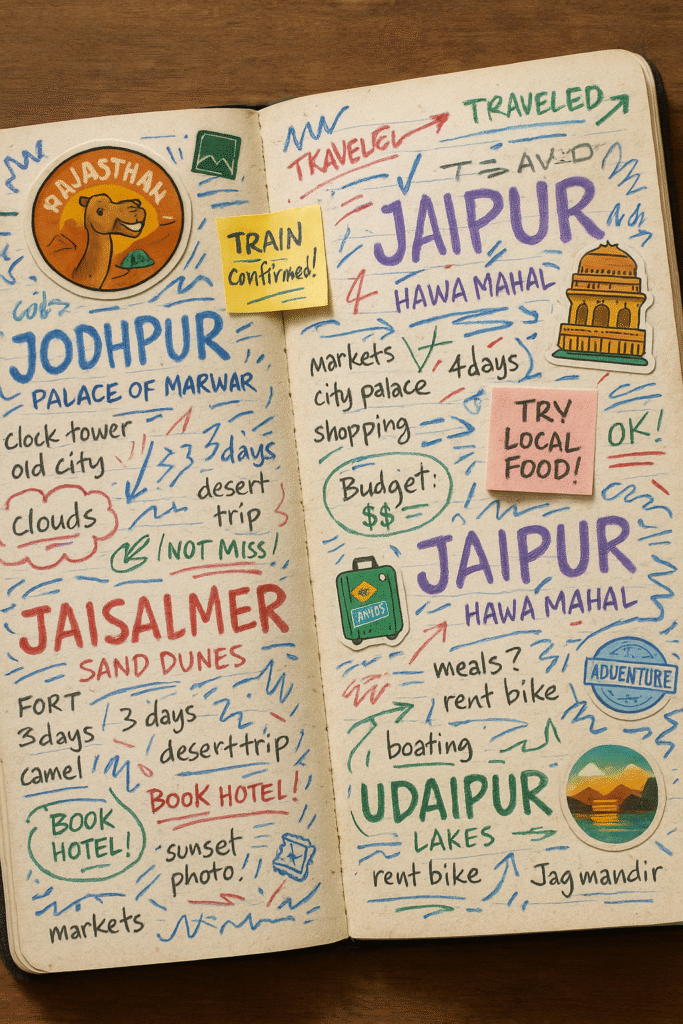 RAJASTHAN
JODHPUR
PALACE OF MARWAR
clock tower
old city
3 days
clouds
desert
trip
NOT MISS!
JAISALMER
SAND DUNES
FORT
3 days
3 days
camel
desert trip
BOOK HOTEL!
BOOK
HOTEL!
sunset
photo.
markets
TRAIN
Confirmed!
TKAVELEL
TRAVELED
JAIPUR
4
HAWA MAHAL
markets
4 days
city palace
shopping
TRY
LOCAL
FOOD!
OK!
Budget:
$$
JAIPUR
HAWA MAHAL
ADVENTURE
meals?
rent bike
boating
UDAIPUR
LAKES
rent bike
Jagmandir